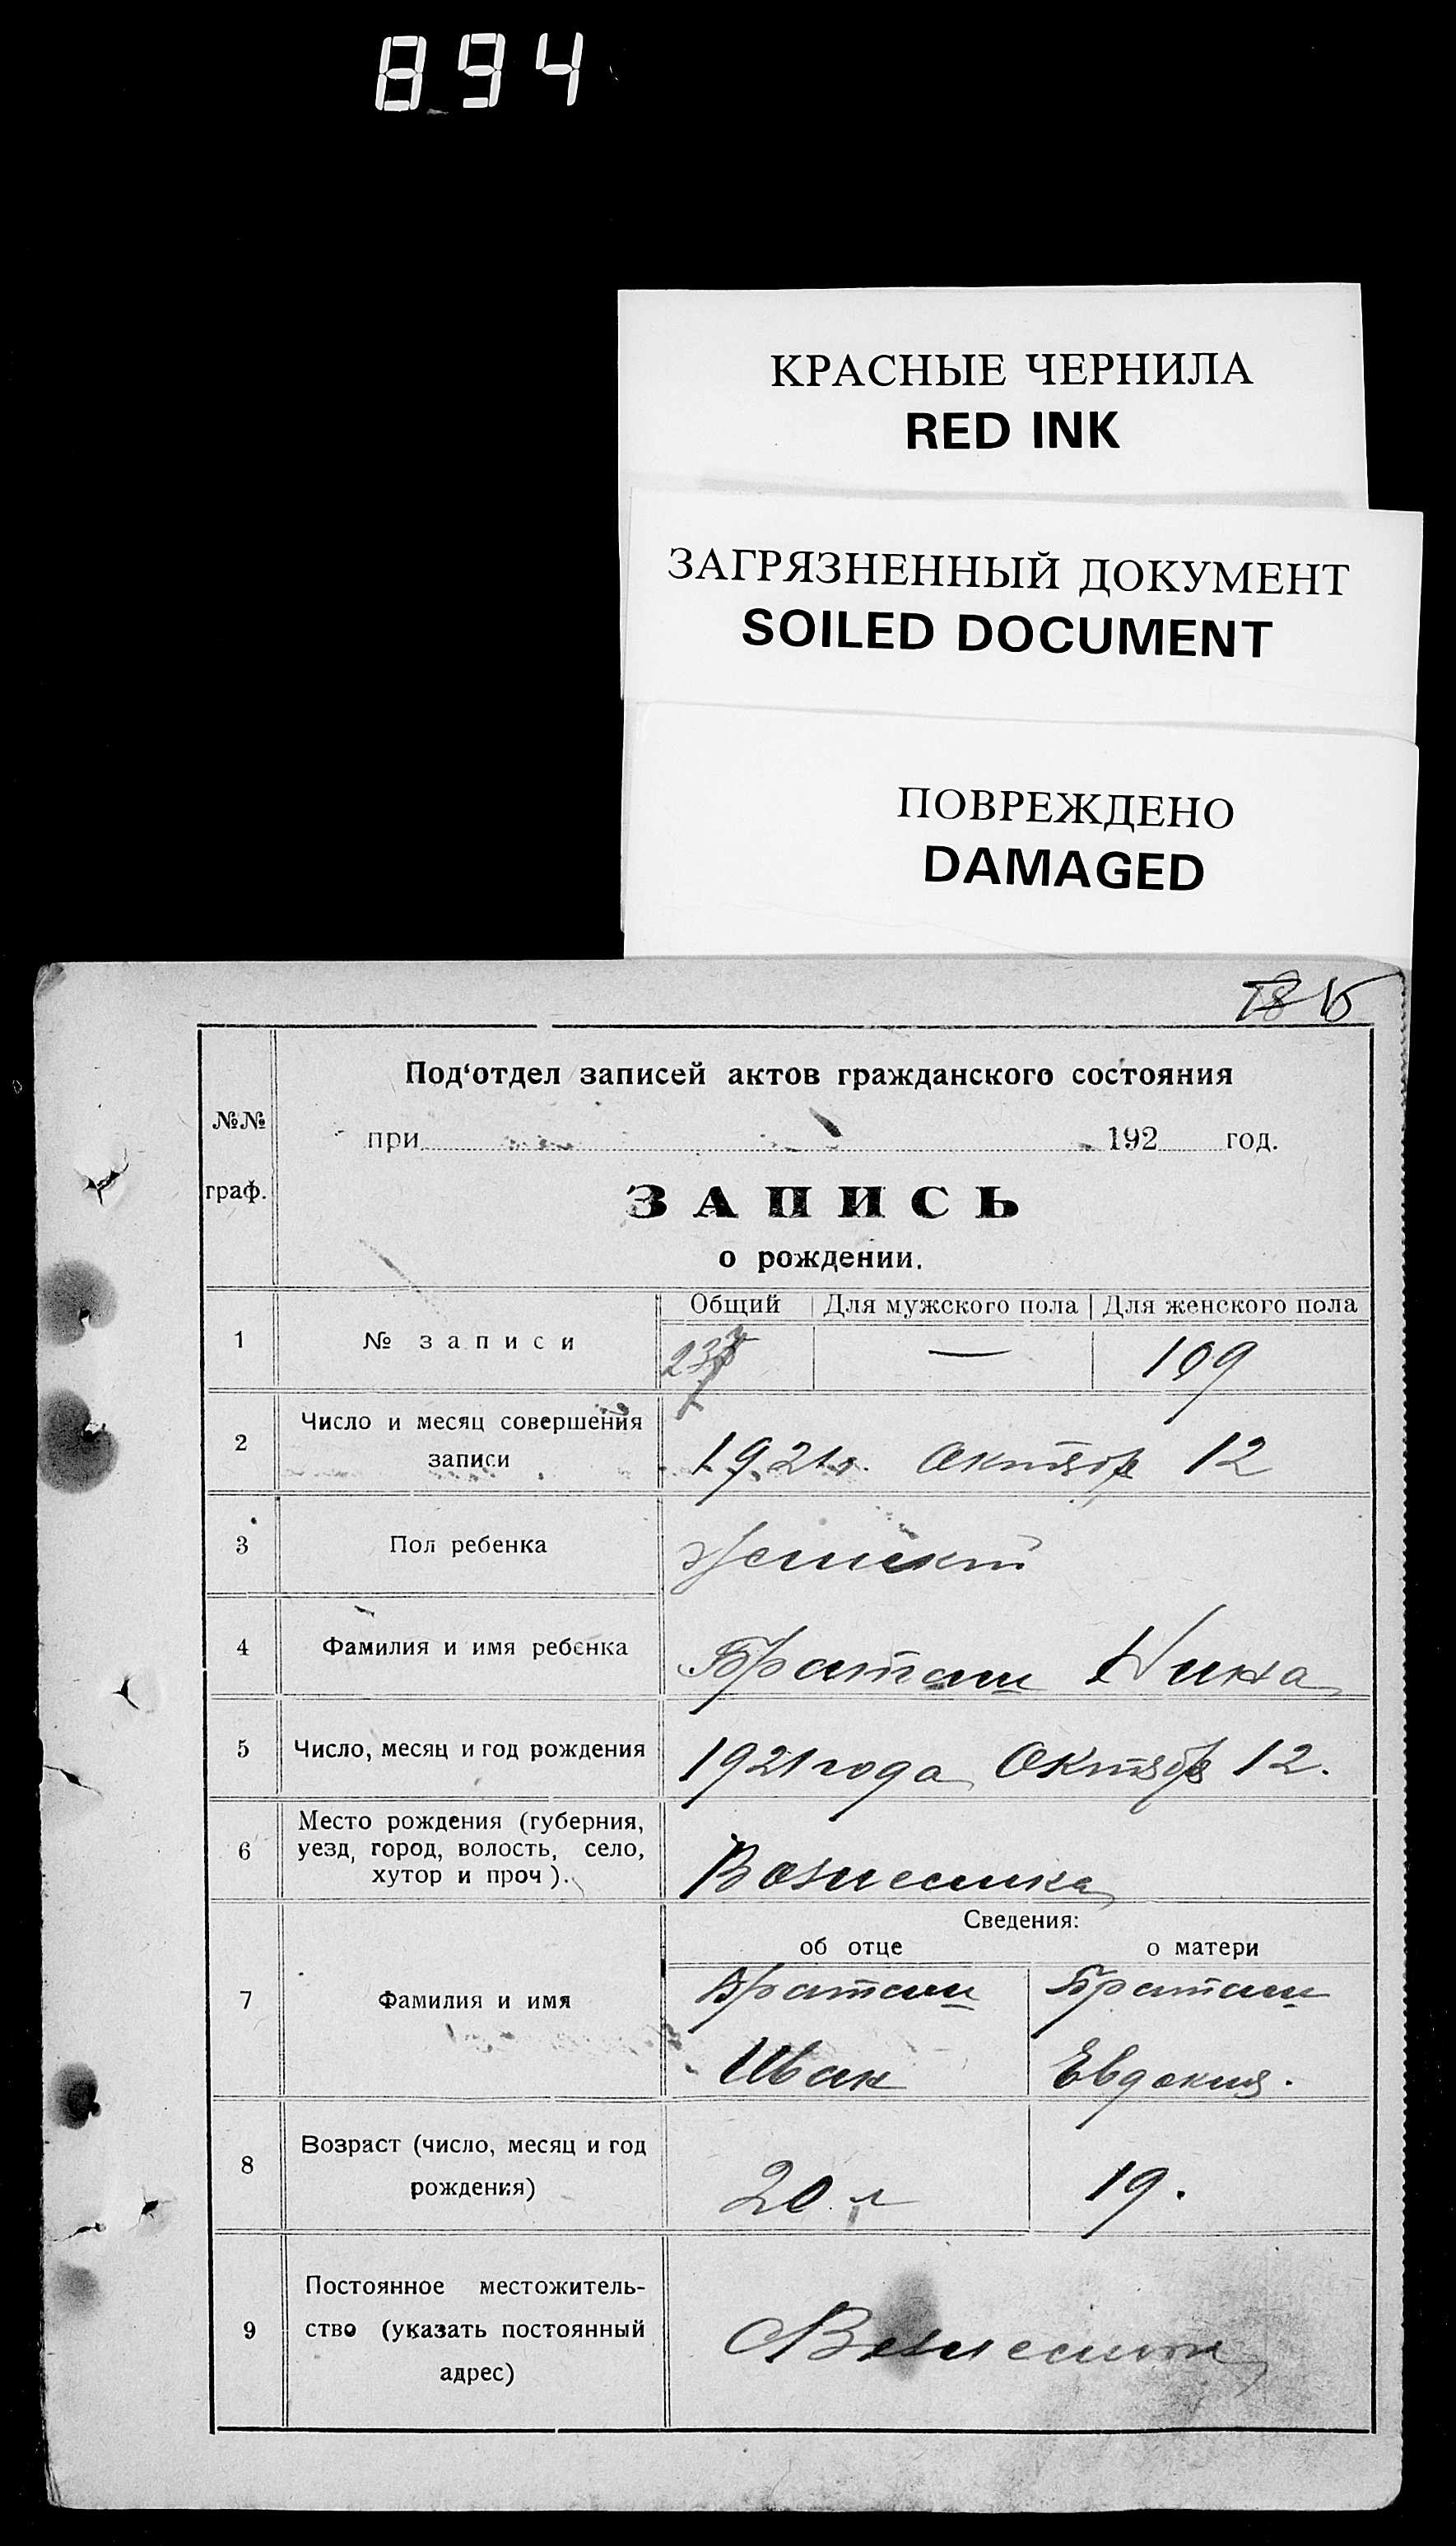 894
КРАСНЫЕ ЧЕРНИЛА
RED INK
ЗАГРЯЗНЕННЫЙ ДОКУМЕНТ
SOILED DOCUMENT
ПОВРЕЖДЕНО
DAMAGED
Под‘отдел записей актов гражданского состояния
№№
при 192 год.
граф.
ЗАПИСЬ
о рождении.
Общий Для мужского пола Для женского пола
1 № записи — 109
2 Число и месяц совершения
записи
1921г. Октябр 12
3 Пол ребенка
Женский
4 Фамилия и имя ребенка
Браташ Нина
5 Число, месяц и год рождения 1921 года Октябр 12.
6 Место рождения (губерния,
уезд, город, волость, село,
хутор и проч).
Вознесенка
Сведения:
об отце о матери
7 Фамилия и имя
Браташ Браташ
Иван Евдокия.
8 Возраст (число, месяц и год
рождения)
20 л 19.
9 Постоянное местожитель-
ство (указать постоянный
адрес)